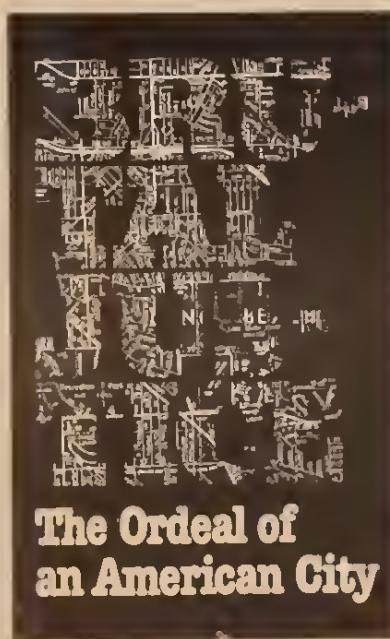 BRU-
TAL
JUS-
TICE
The Ordeal of
an American City